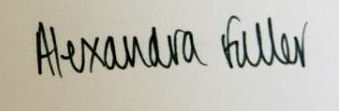 Alexandra Fuller